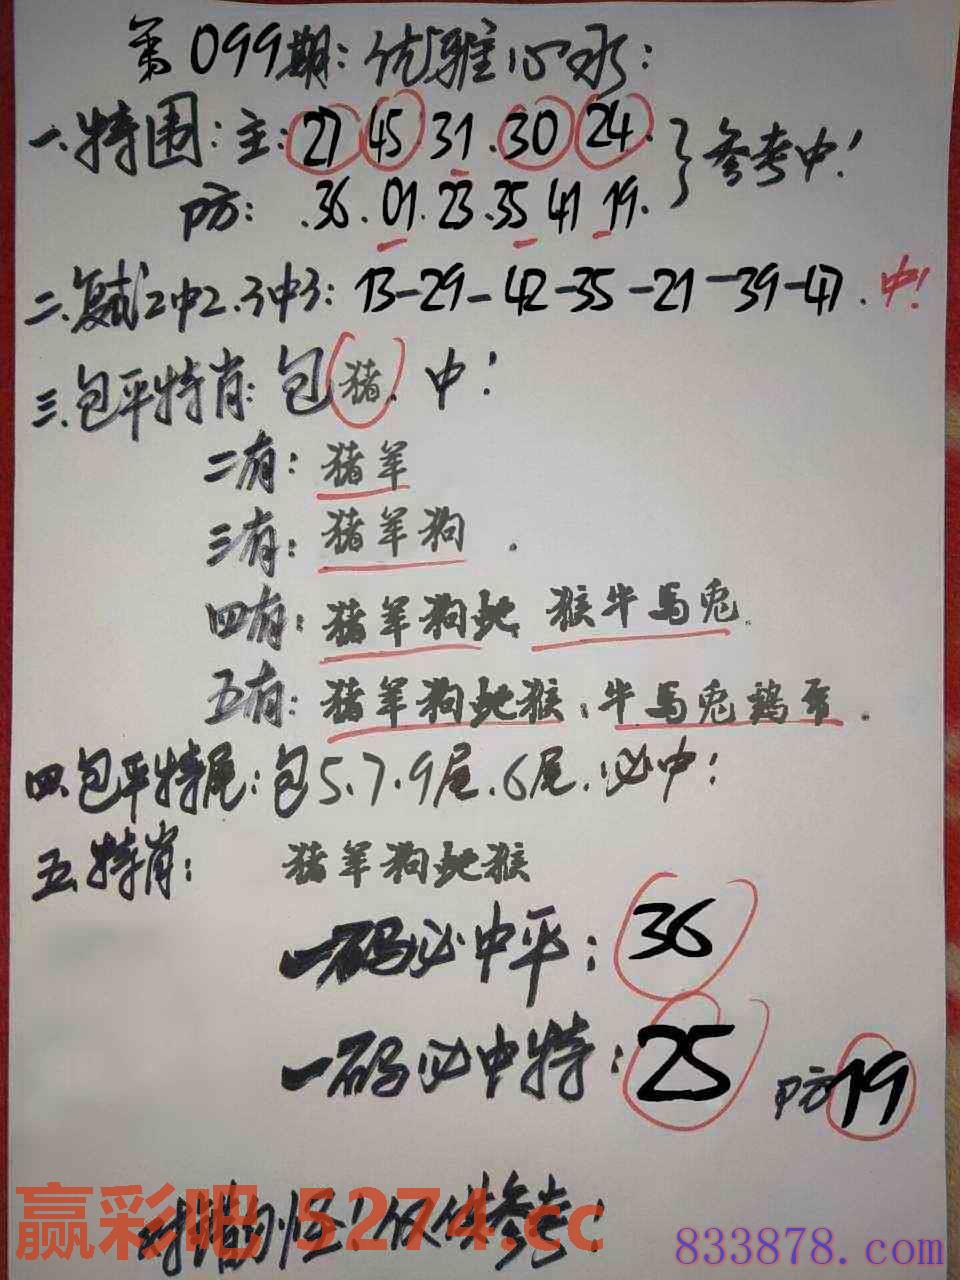 第099期：优雅心水：
一.特围：主：27 45.31.30 24. }参考中！
防：.36.01.23.35 41 19.
二.复试2中2.3中3：13-29-42-35-21-39-47.中！
三.包平特肖：包猪.中！
二有：猪羊
三有：猪羊狗.
四有：猪羊狗蛇 猴牛马兔.
五有：猪羊狗蛇猴；牛马兔鸡.
四.包平特尾：包5.7.9尾.6尾.必中！
五.特肖： 猪羊狗蛇猴
一码必中平：36
一码必中特：25 防19
对错勿怪！仅供参考！
赢彩吧 5274.cc
833878.com